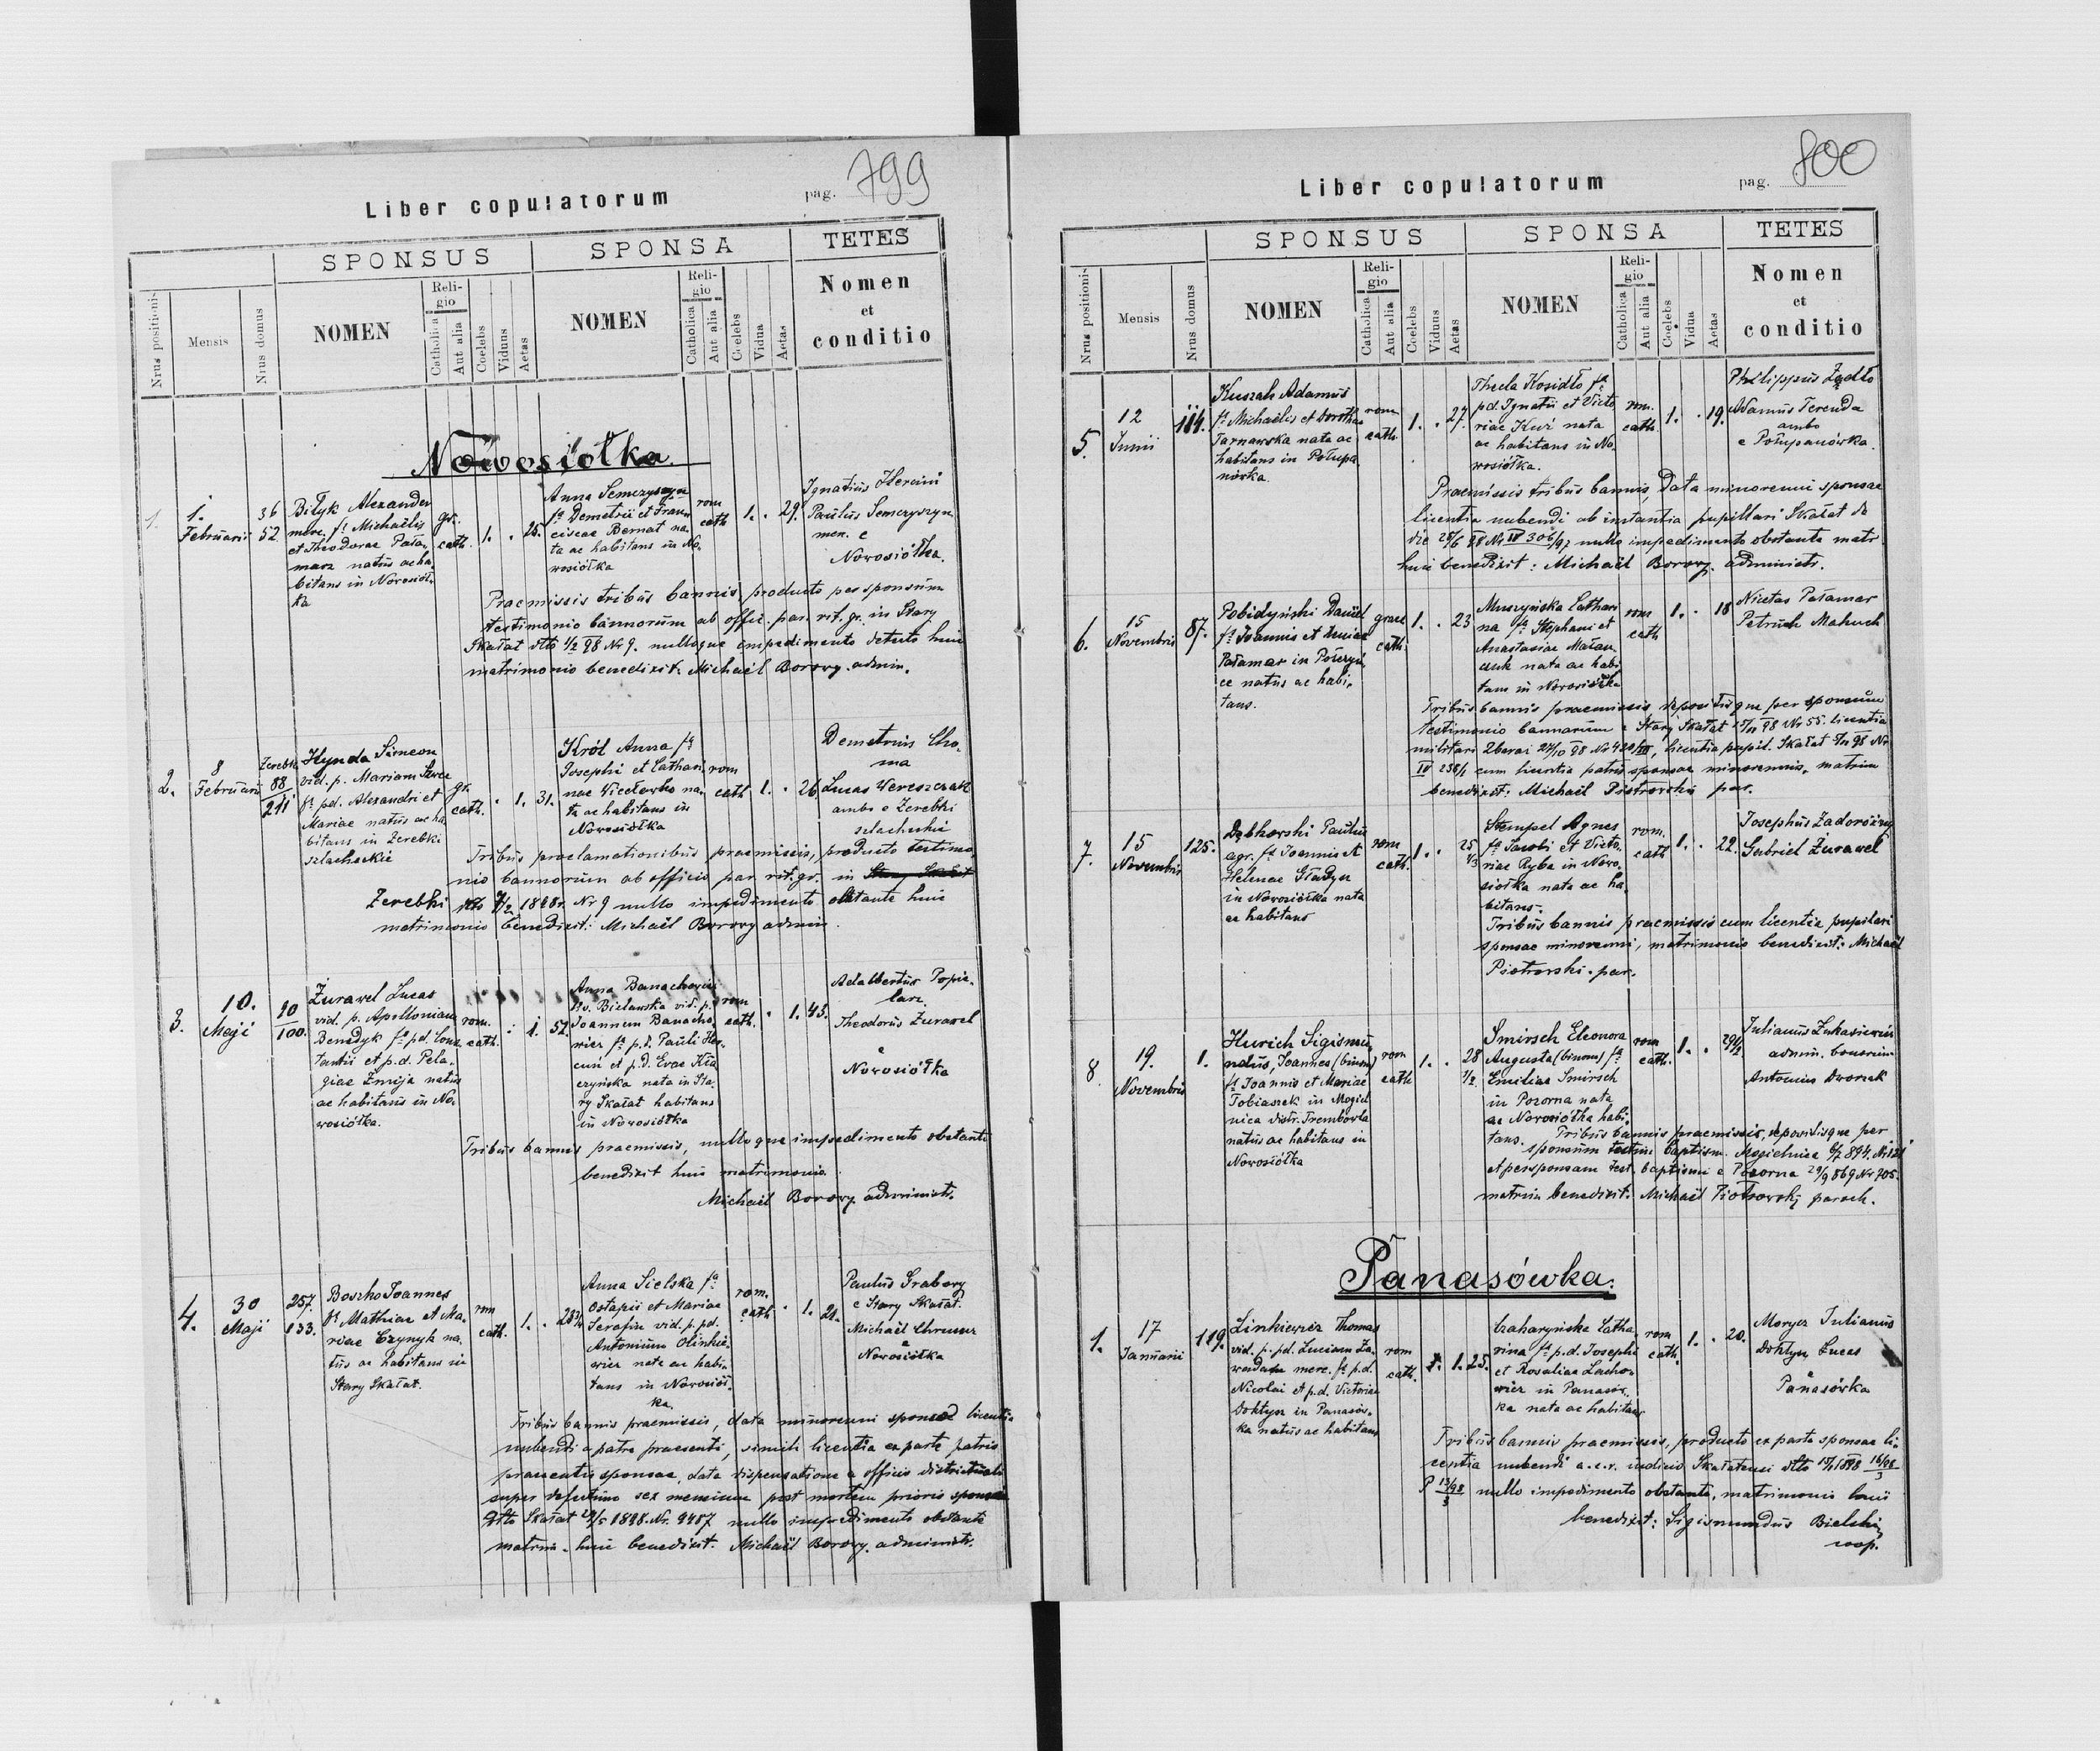 799
Liber copulatorum
pag.
SPONSUS
SPONSA
TETES
Nrus positionis
Mensis
Nrus domus
NOMEN
Religio
Catholica
Aut alia
Coelebs
Viduus
Aetas
NOMEN
Religio
Catholica
Aut alia
Coelebs
Vidua
Aetas
Nomen
et
conditio
Nowosiołka.
1.
1.
Februarii
36
52
Biłyk Alexander
merc. fs Michaëlis
et Theodorae Pała-
marz natus ac ha-
bitans in Nowosioł-
ka
gr.
cath.
1.
.
25.
Anna Semczyszyn
fa Demetrii et Fran-
ciscae Bernat na-
ta ac habitans in No-
wosiółka
rom
cath
1.
.
29.
Ignatius
Paulus Semczyszyn
mer. e
Nowosiółka.
Praemissis tribus bannis, producto per sponsum
testimonio bannorum ab offic. par. rit. gr. in Stary
Skałat dto 1/2 98 Nr 9. nulloque impedimento detecto huic
matrimonio benedixit. Michaël Borowy. admin.
2.
8
Februarii
Zerebki
88
211
Hynda Simeon
vid. p. Mariam
fs pd. Alexandri et
Mariae natus ac ha-
bitans in Zerebki
szlacheckie
gr.
cath.
.
1.
31.
Król Anna fa
Josephi et Cathari-
nae Więcławska na-
ta ac habitans in
Nowosiółka
rom
cath
1.
.
26.
Demetrius Cho-
ma
Lucas Wereszczak
ambo e Zerebki
szlacheckie
Tribus proclamationibus praemissis, producto testimo-
nio bannorum ab officio par. rit. gr. in Stary Skałat
Zerebki dto 7/2 1898. Nr 9 nullo impedimento obstante huic
matrimonio benedixit: Michaël Borowy admin.
3.
10.
Maji
90
100.
Żurawel Lucas
vid. p. Apolloniam
Benedyk fs pd. Cons-
tantii et p.d. Pela-
giae Żmija natus
ac habitans in No-
wosiółka.
rom.
cath.
.
1.
52.
Anna Banachowicz
1o v. Bielawska vid. p.
Joannem Banacho-
wicz fa p.d. Pauli
et p.d. Evae
nata in Sta-
ry Skałat habitans
in Nowosiółka
rom
cath.
.
1.
43.
Adalbertus Popie-
larz.
Theodorus Żurawel
e
Nowosiółka
Tribus bannis praemissis, nulloque impedimento obstante
benedixit huic matrimonio.
Michaël Borowy administr.
4.
30
Maji
257.
133.
Boszko Joannes
fs Mathiae et Ma-
riae Czynyk na-
tus ac habitans in
Stary Skałat.
rom
cath.
1.
.
23 3/4
Anna Sielska fa
Ostapii et Mariae
Serafin vid. p. pd.
Antonium Olinkie-
wicz nata ac habi-
tans in Nowosioł-
ka.
rom.
cath.
.
1.
21.
Paulus Grabowy
e Stary Skałat.
Michaël
e
Nowosiółka
Tribus bannis praemissis, data minorenni sponso licentia
nubendi a patre praesenti, simili licentia ex parte patris
praesentis sponsae, data dispensatione a officio districtuali
super defectum sex mensium post mortem prioris sponsi
dto Skałat 29/5 1898. Nr. 9487 nullo impedimento obstante
matrim. huic benedixit. Michaël Borowy. administr.
800
Liber copulatorum
pag.
SPONSUS
SPONSA
TETES
Nrus positionis
Mensis
Nrus domus
NOMEN
Religio
Catholica
Aut alia
Coelebs
Viduus
Aetas
NOMEN
Religio
Catholica
Aut alia
Coelebs
Vidua
Aetas
Nomen
et
conditio
5.
12
Junii
114.
Kuszah Adamus
fs Michaëlis et Dorothea
Tarnawska nata ac
habitans in Połupa-
nówka.
rom
cath.
1.
.
27.
Thecla Kosidło fa
pd. Ignatii et Victo-
riae Kuzi nata
ac habitans in No-
wosiółka.
rom.
cath.
1.
.
19.
Philippus Żądło
Adamus Ferenda
ambo
e Połupanówka.
Praemissis tribus bannis, data minorenni sponsae
licentia nubendi ab instantia pupillari Skałat de
die 25/6 98 Nr IV 306/97 nullo impedimento obstante matr.
huic benedixit: Michaël Borowy. administr.
6.
15
Novembris
87.
Pobidyński Daniel
fs Joannis et
Pałamar in
natus ac habi-
tans.
graec
cath.
1.
.
23
Muszyńska Cathari-
na fa Stephani et
Anastasiae
nata ac habi-
tans in Nowosiółka
rom
cath
1.
.
18
Nicetas Pałamar
Petruch Mahuch
Tribus bannis praemissis depositisque per sponsum
testimonio bannorum e Stary Skałat 15/11 98 Nr 55. licentia
militari Zbaraż 27/10 98 Nr 420/III, licentia pupil. Skałat 98 Nr
IV 238/1 cum licentia patris sponsae minorennis, matrim
benedixit: Michaël Piotrowski par.
7.
15
Novembris
125.
Dąbkowski Paulus
agr. fs Joannis et
Helenae Gładyn
in Nowosiółka nata
ac habitans
rom
cath.
1.
.
25
1/3
Stempel Agnes
fa Jacobi et Victo-
riae Ryba in Nowo-
siołka nata ac ha-
bitans.
rom.
cath
1.
.
22.
Josephus Zadorożny
Gabriel Żurawel
Tribus bannis praemissis cum licentia pupilari
sponsae minorenni, matrimonio benedixit: Michaël
Piotrowski. par.
8.
19.
Novembris
1.
Hurich Sigismun-
dus, Joannes (binom)
fs Joannis et Mariae
Tobiaszek in Mogiel-
nica distr. Trembowla
natus ac habitans in
Nowosiółka
rom
cath
1.
.
28
1/2
Smirsch Eleonora
Augusta (binom) fa
Emiliae Smirsch
in Pozorna nata
ac Nowosiółka habi-
tans.
rom
cath.
1.
.
29 1/2
Julianus Łukasiewicz
admin. bonorum
Antonius Dworzak
Tribus bannis praemissis, depositisque per
sponsum testim baptism. Mogielnica 6/7 894. Nr 121
et per sponsam test. baptismi e Pozorna 29/9 869 Nr 705.
matrim benedixit. Michaël Piotrowski paroch.
Panasówka.
1.
17
Januarii
119.
Linkiewicz Thomas
vid. p. pd. Luciam Za-
wada merc. fs p.d.
Nicolai et p.d. Victoriae
Doktyn in Panasów-
ka natus ac habitans
rom
cath.
1.
1.
25.
Czaharyńska Catha-
rina fa p.d. Josephi
et Rosaliae Lacho-
wicz in Panasów-
ka nata ac habitans
rom
cath.
1.
.
20.
Moryez Julianus
Doktyn Lucas
e
Panasówka
Tribus bannis praemissis, producto ex parte sponsae li-
centia nubendi a c.r. iudicio Skałatensi dto 1898 16/98
3
P 13/98
3
nullo impedimento obstante, matrimonio huic
benedixit: Sigismundus Bielski
coop.